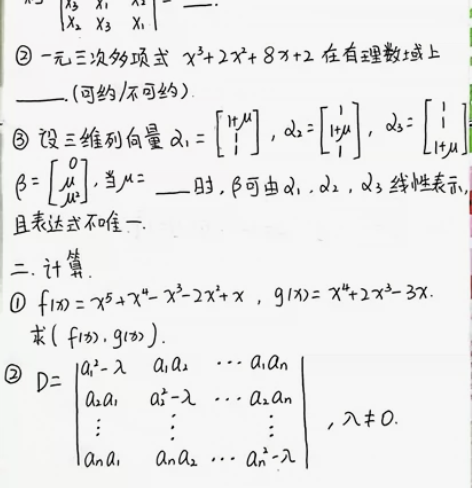 x₃ x₁ x₂
x₂ x₃ x₁ = ___.
② 一元三次多项式 x³+2x²+8x+2 在有理数域上
____.(可约/不可约).
③ 设三维列向量 α₁=[1+μ 1 1], α₂=[1 1+μ 1], α₃=[1 1 1+μ]
β=[0 μ μ²],当μ= ___时,β可由α₁,α₂,α₃线性表示,
且表达式不唯一.
二.计算.
① f(x)=x⁵+x⁴-x³-2x²+x , g(x)=x⁴+2x³-3x.
求(f(x),g(x)).
② D= |a₁²-λ a₁a₂ ⋯ a₁aₙ
a₂a₁ a₂²-λ ⋯ a₂aₙ
⋮ ⋮ ⋮
aₙa₁ aₙa₂ ⋯ aₙ²-λ| ,λ≠0.